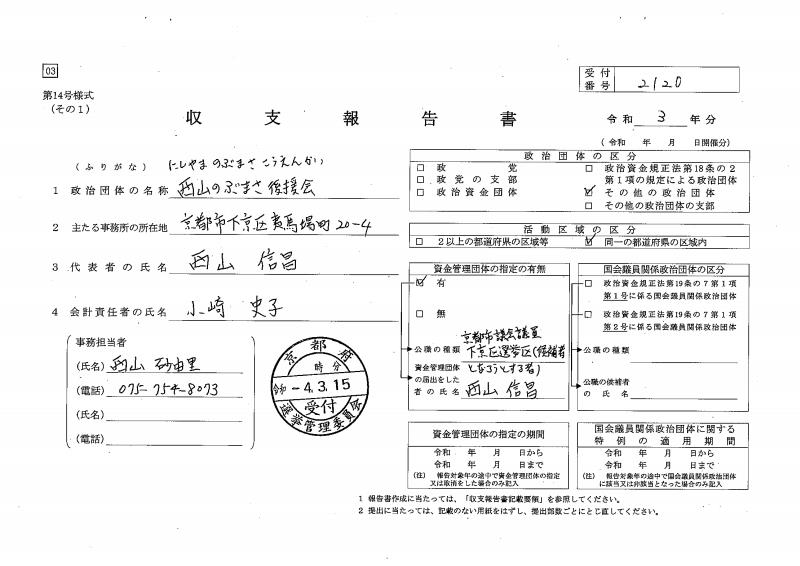 03
第14号様式
(その1)
受付番号 2120
収支報告書
令和 3 年分
(令和 年 月 日開催分)
(ふりがな) にしやまのぶまさこうえんかい
1 政治団体の名称 西山のぶまさ後援会
2 主たる事務所の所在地 京都市下京区夷馬場町20-4
3 代表者の氏名 西山 信昌
4 会計責任者の氏名 小崎 史子
事務担当者
(氏名) 西山 砂由里
(電話) 075-754-8073
(氏名)
(電話)
京都府
時分
令和-4.3.15
受付
選挙管理委員会
政治団体の区分
□ 政党
□ 政党の支部
□ 政治資金団体
□ 政治資金規正法第18条の2第1項の規定による政治団体
☑ その他の政治団体
□ その他の政治団体の支部
活動区域の区分
□ 2以上の都道府県の区域等
☑ 同一の都道府県の区域内
資金管理団体の指定の有無
☑ 有
□ 無
公職の種類 京都市議会議員
下京区選挙区(候補者
となろうとする者)
資金管理団体の届出をした者の氏名 西山 信昌
国会議員関係政治団体の区分
□ 政治資金規正法第19条の7第1項
第1号に係る国会議員関係政治団体
□ 政治資金規正法第19条の7第1項
第2号に係る国会議員関係政治団体
公職の種類
公職の候補者の氏名
資金管理団体の指定の期間
令和 年 月 日から
令和 年 月 日まで
(注) 報告対象年の途中で資金管理団体の指定
又は取消をした場合のみ記入
国会議員関係政治団体に関する
特例の適用期間
令和 年 月 日から
令和 年 月 日まで
(注) 報告対象年の途中で国会議員関係政治団体
に該当又は非該当となった場合のみ記入
1 報告書作成に当たっては、「収支報告書記載要領」を参照してください。
2 提出に当たっては、記載のない用紙をはずし、提出部数ごとにとじてください。